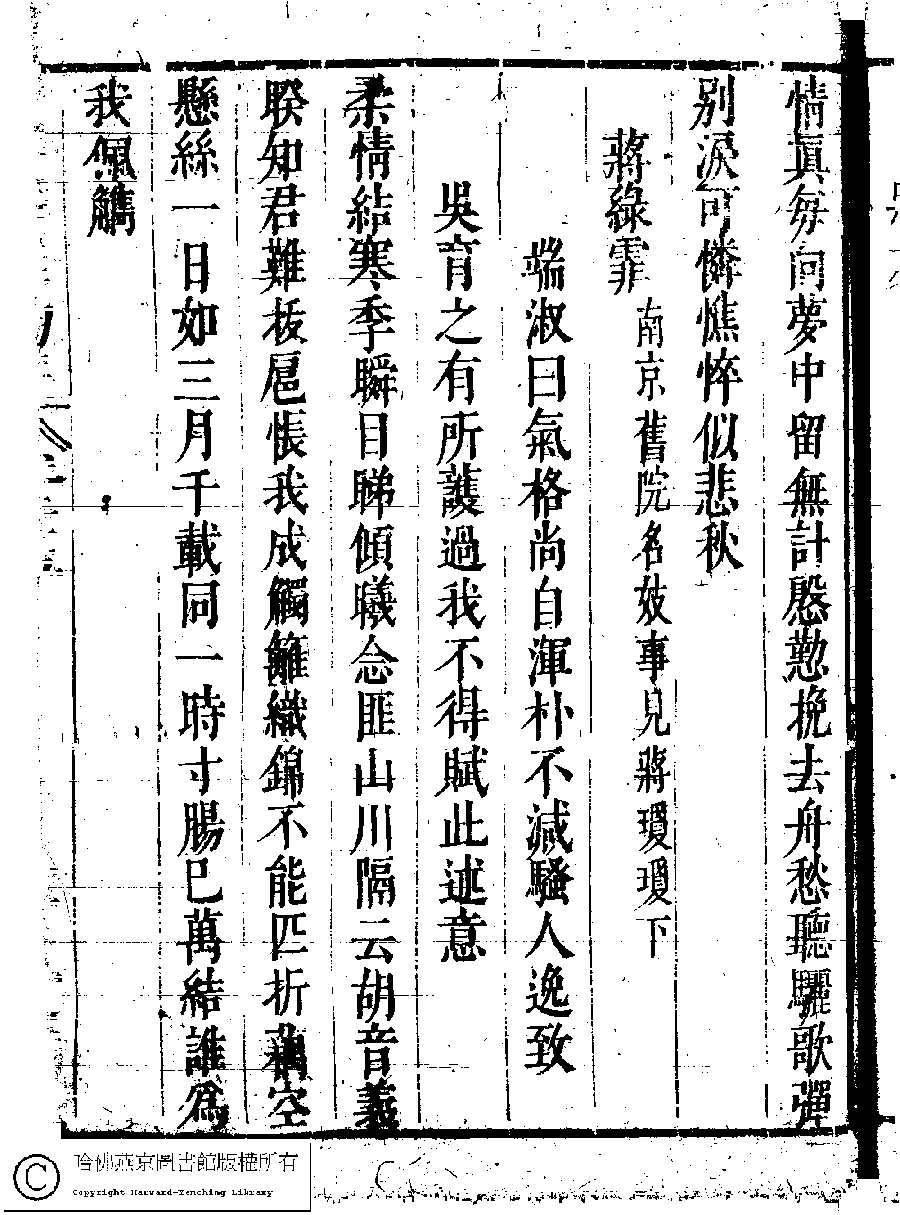 情眞每向夢中留無計慇懃挽去舟愁聽驪歌彈
別淚可憐憔悴似悲秋
蔣綠霏 南京舊院名妓事見蔣瓊瓊下
端淑曰氣格尚自渾朴不減騷人逸致
吳育之有所護過我不得賦此述意
柔情結寒季瞬目睇傾曦念匪山川隔云胡音義
睽知君難扳扈悵我成觸籬織錦不能匹折藕空
懸絲一日如三月千載同一時寸腸已萬結誰爲
我佩觿
哈佛燕京圖書館版權所有
Copyright Harvard-Yenching Library